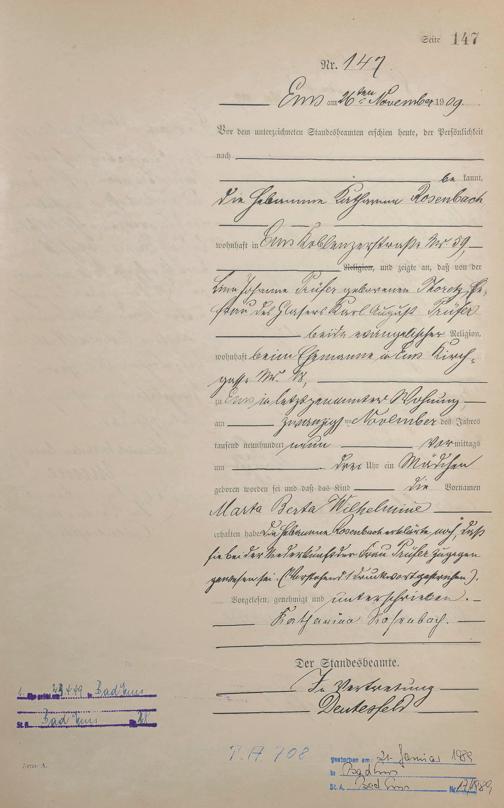 Seite 147
Nr. 147
Ems am 26ten November 1909.
Vor dem unterzeichneten Standesbeamten erschien heute, der Persönlichkeit
nach
be kannt,
die Hebamme Katharina Rosenbach
wohnhaft in Ems Koblenzerstraße Nr 39,
Religion, und zeigte an, daß von der
Johanna Prüfer geborenen Ehe-
frau des Glasers Karl August Prüfer
beide evangelischer Religion,
wohnhaft beim Ehemanne in Ems Kirch-
gasse Nr.
zu Ems in letztgenannter Wohnung
am zwanzigsten November des Jahres
tausend neunhundert neun Vor mittags
um drei Uhr ein Mädchen
geboren worden sei und daß das Kind die Vornamen
Marta Berta Wilhelmine
erhalten habe. Die Hebamme Rosenbach erklärte noch, daß
sie bei der Niederkunft der Frau Prüfer zugegen
gewesen sei. (Vorstehend 1 Druckwort gestrichen).
Vorgelesen, genehmigt und unterschrieben.
Katharina Rosenbach.
Der Standesbeamte.
In Vertretung
in Bad Ems
St. A. Bad Ems Nr.
Gestorben am: 21. Januar 1989
in Bad Ems
St. A. Bad Ems Nr. 17/1989